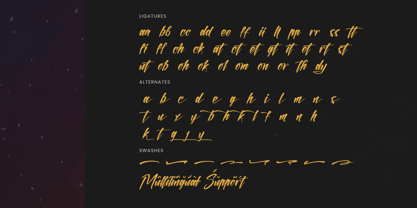 LIGATURES
aa bb cc dd ee ff ii ll pp rr ss tt
fi fl ch ck at et et gt it ot rt st
ut ob eh ek el em en er Th dy
ALTERNATES
a b c d e g h i l m n s
t u x y b h k l f m n h
k t g j y
SWASHES
Multilingual Support